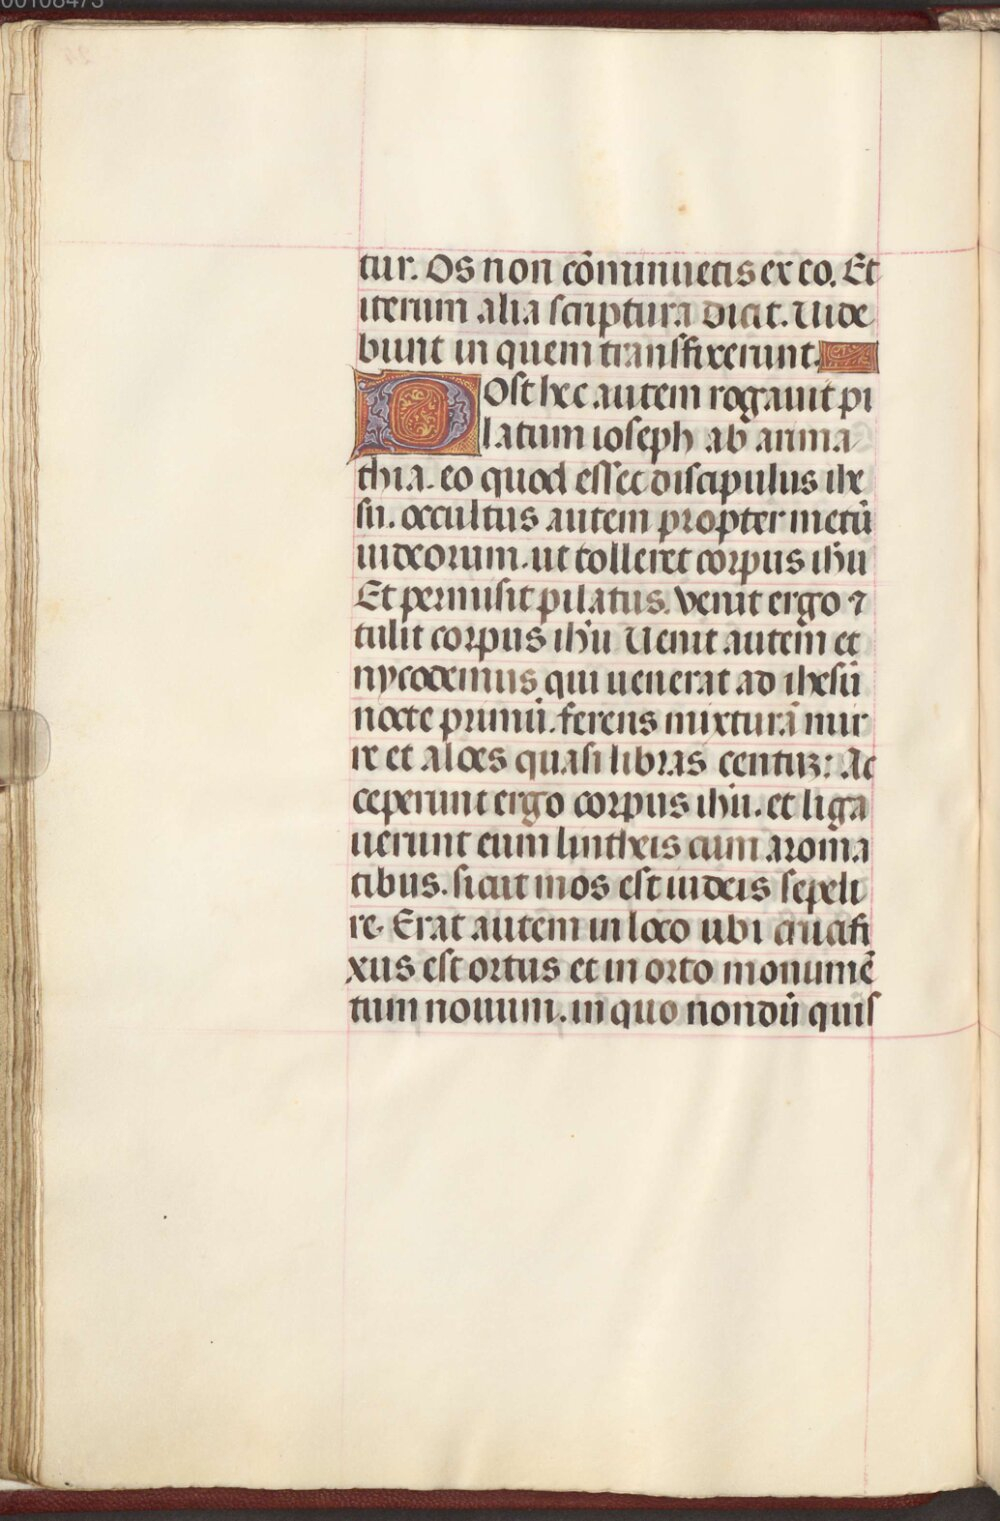 00108473
tur. Os non cōminuetis ex eo. Et
iterum alia scriptura dicit. Uide
bunt in quem transfixerunt.
Post hec autem rogauit pi
latum ioseph ab arima
thia. eo quod esset discipulus ihe
su. occultus autem propter metū
iudeorum. ut tolleret corpus ihu
Et permisit pilatus. venit ergo ⁊
tulit corpus ihu Uenit autem et
nycodemus qui uenerat ad ihesū
nocte primū. ferens mixturā mir
re et aloes quasi libras centuʒ: Ac
ceperunt ergo corpus ihu. et liga
uerunt eum lintheis cum aroma
tibus. sicut mos est iudeis sepeli
re. Erat autem in loco ubi crucifi
xus est ortus et in orto monumē
tum nouum. in quo nondū quis